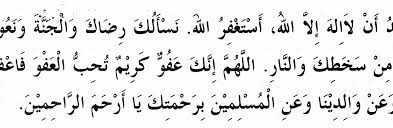 دُ أَنْ لاَالِهَ إِلاَّ اللهُ، أَسْتَغْفِرُ اللهَ. نَسْأَلُكَ رِضَاكَ وَالْجَنَّةَ وَنَعُو
مِنْ سَخَطِكَ وَالنَّارِ. اللَّهُمَّ إِنَّكَ عَفُوٌّ كَرِيْمٌ تُحِبُّ الْعَفْوَ فَاعْف
وَعَنْ وَالِدِيْنَا وَعَنِ الْمُسْلِمِيْنَ بِرَحْمَتِكَ يَا أَرْحَمَ الرَّاحِمِيْنَ.